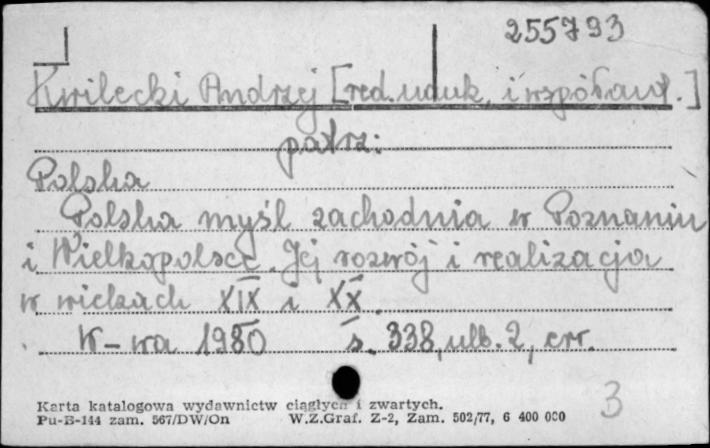 255793
Kwilecki Andrzej [red. nauk. i współaut.]
patrz:
Polska
Polska myśl zachodnia w Poznaniu
i Wielkopolsce. Jej rozwój i realizacja
w wiekach XIX i XX.
W-wa 1980 s. 338, nlb. 2, err.
Karta katalogowa wydawnictw ciągłych i zwartych.
Pu-B-144 zam. 567/DW/On W.Z.Graf. Z-2, Zam. 502/77, 6 400 000
3